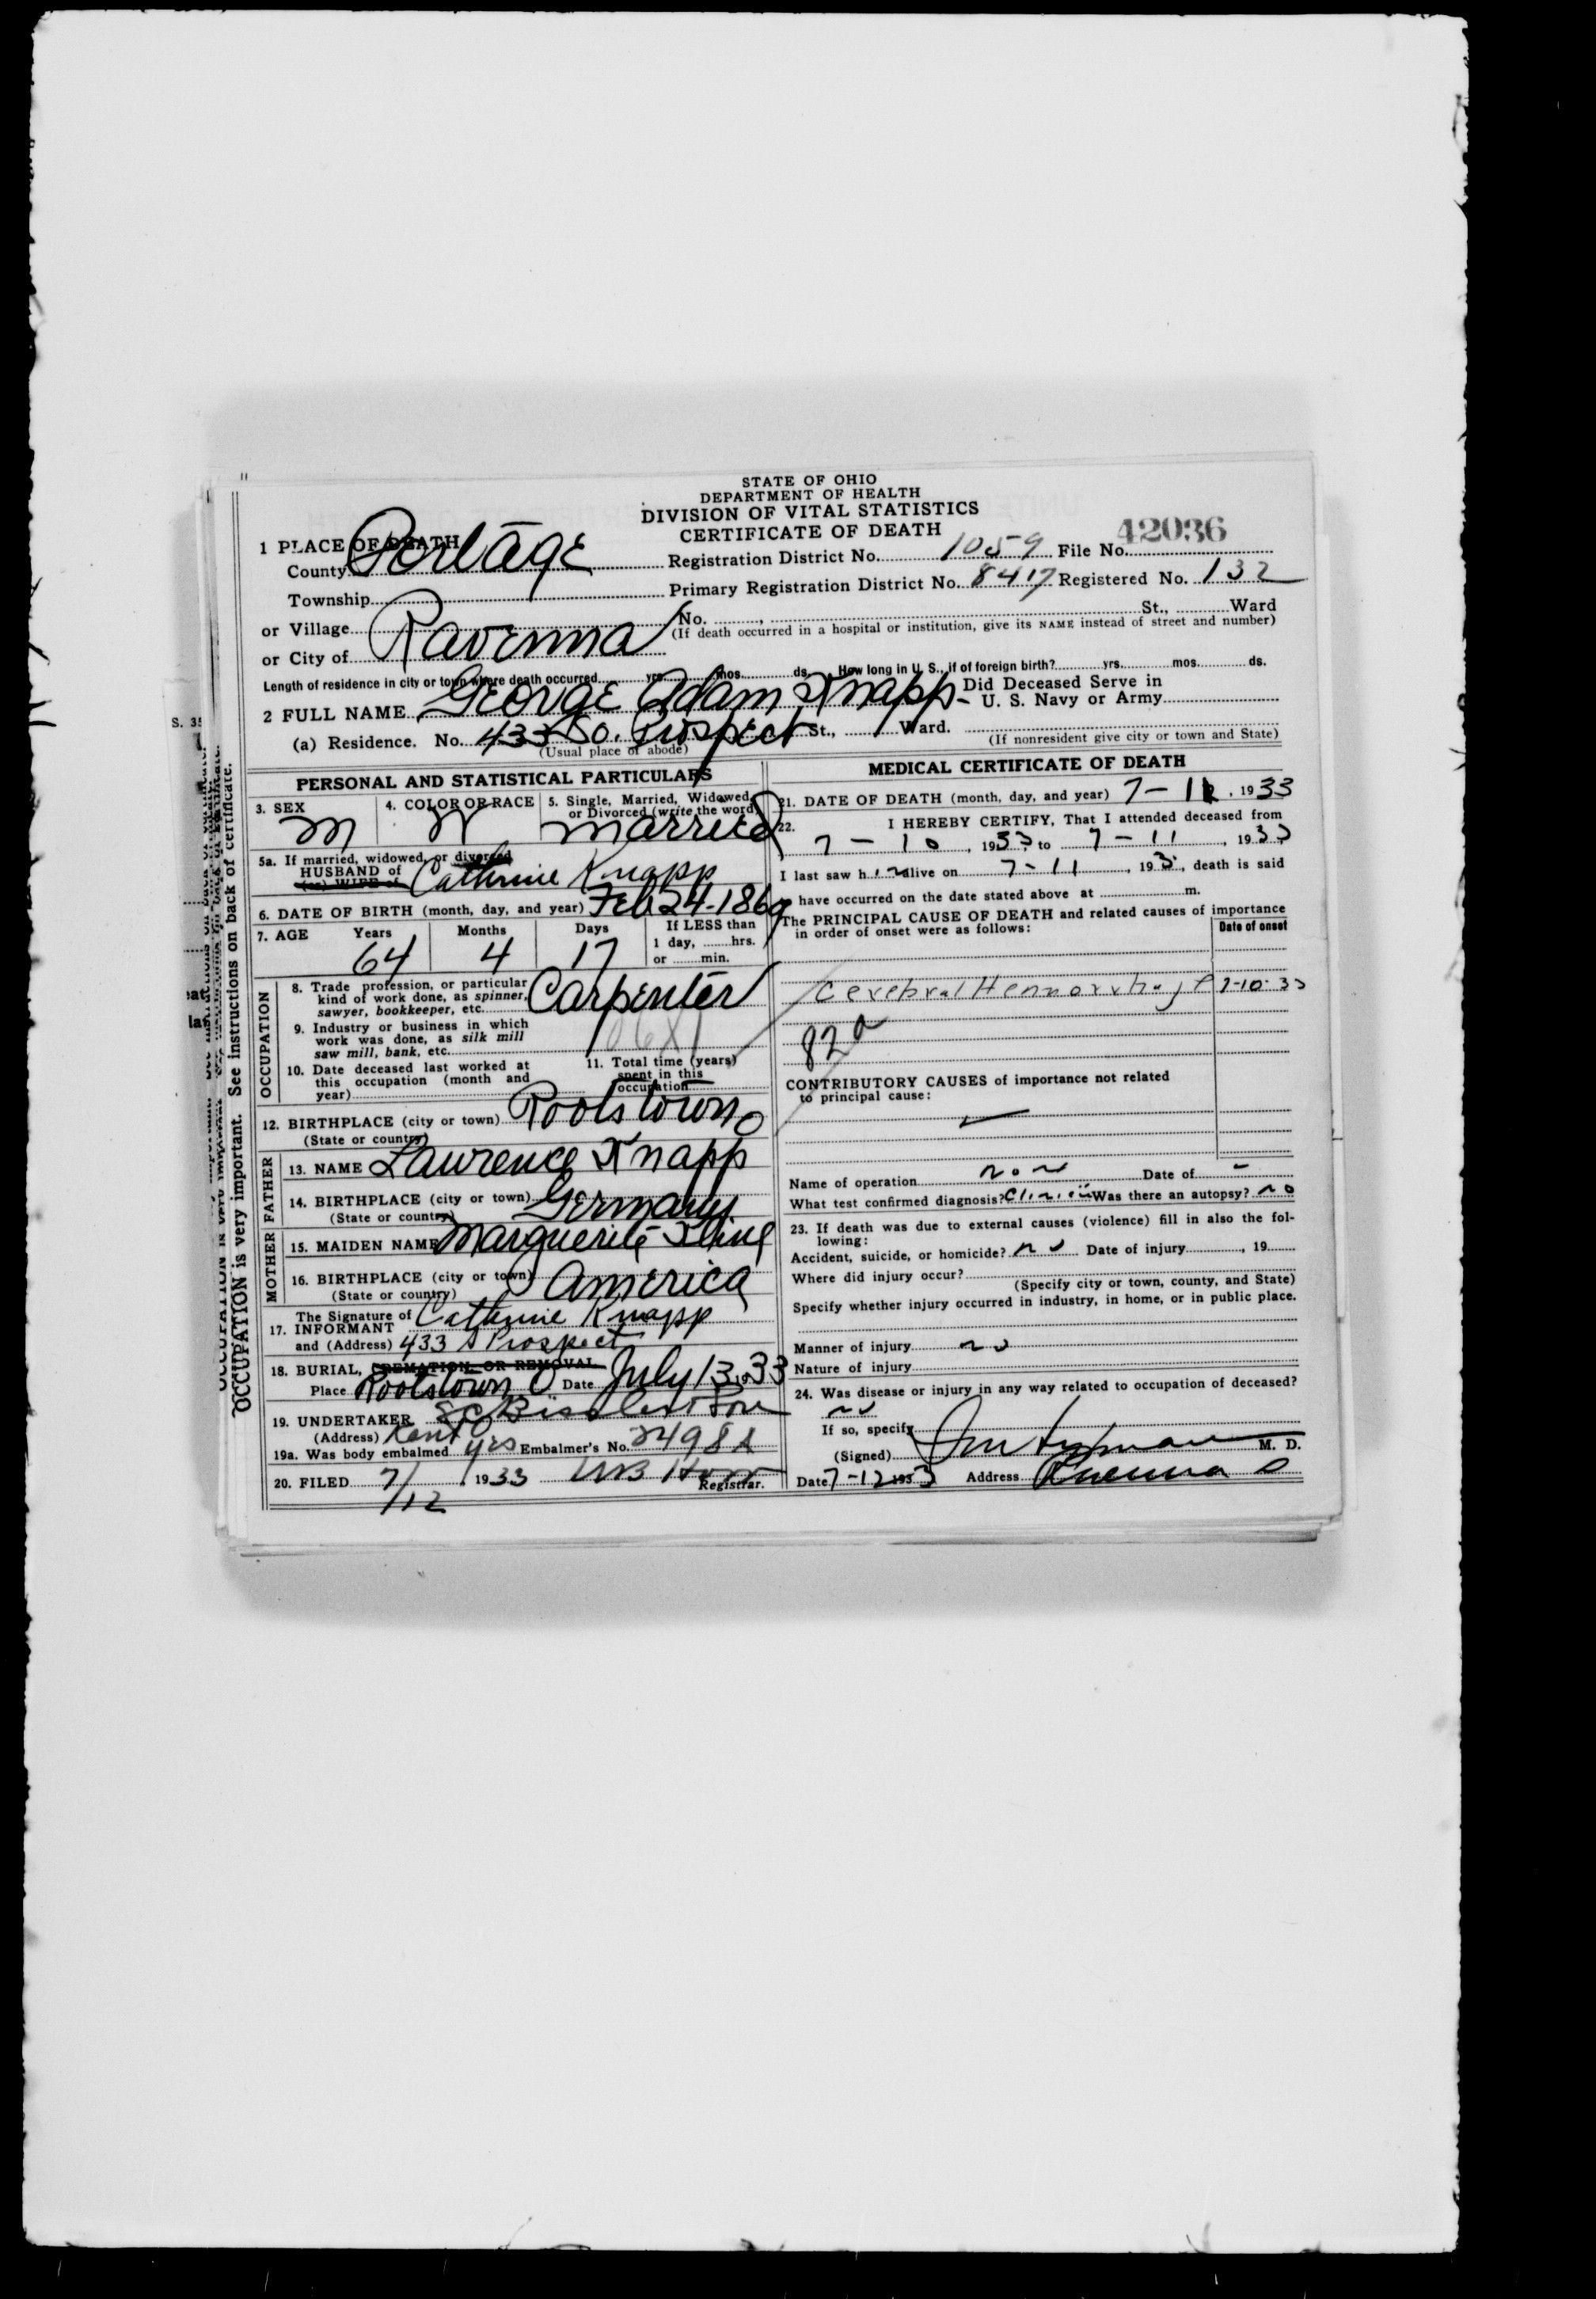 STATE OF OHIO
DEPARTMENT OF HEALTH
DIVISION OF VITAL STATISTICS
CERTIFICATE OF DEATH
42036
1 PLACE OF DEATH
County Portage Registration District No. 1059 File No.
Township Primary Registration District No. 8417 Registered No. 132
or Village No. , St., Ward
(If death occurred in a hospital or institution, give its NAME instead of street and number)
or City of Ravenna
Length of residence in city or town where death occurred yrs. mos. ds. How long in U. S., if of foreign birth? yrs. mos. ds.
2 FULL NAME George Adam Knapp- Did Deceased Serve in U. S. Navy or Army
(a) Residence. No. 433 So. Prospect St., Ward.
(Usual place of abode) (If nonresident give city or town and State)
PERSONAL AND STATISTICAL PARTICULARS
3. SEX 4. COLOR OR RACE 5. Single, Married, Widowed, or Divorced (write the word)
M W married
5a. If married, widowed, or divorced
HUSBAND of Catherine Knapp
(or) WIFE of
6. DATE OF BIRTH (month, day, and year) Feb 24-1869
7. AGE Years Months Days If LESS than
64 4 17 1 day, hrs.
or min.
OCCUPATION
8. Trade profession, or particular
kind of work done, as spinner,
sawyer, bookkeeper, etc. Carpenter
9. Industry or business in which
work was done, as silk mill
saw mill, bank, etc.
10. Date deceased last worked at
this occupation (month and
year)
11. Total time (years)
spent in this
occupation
12. BIRTHPLACE (city or town) Rootstown O
(State or country)
FATHER
13. NAME Lawrence Knapp
14. BIRTHPLACE (city or town) Germany
(State or country)
MOTHER
15. MAIDEN NAME Marguerite Kline
16. BIRTHPLACE (city or town) America
(State or country)
17. The Signature of
INFORMANT Catherine Knapp
and (Address) 433 S Prospect
18. BURIAL, CREMATION, OR REMOVAL
Place Rootstown O Date July 13, 33
19. UNDERTAKER
(Address) Kent O
19a. Was body embalmed yes Embalmer's No. 2498A
20. FILED 7/12, 1933 Registrar.
MEDICAL CERTIFICATE OF DEATH
21. DATE OF DEATH (month, day, and year) 7-11, 1933
22. I HEREBY CERTIFY, That I attended deceased from
7-10, 1933 to 7-11, 1933
I last saw him alive on 7-11, 193 , death is said
to have occurred on the date stated above at m.
The PRINCIPAL CAUSE OF DEATH and related causes of importance
in order of onset were as follows: Date of onset
Cerebral Hemorrhage 7-10-33
82a
CONTRIBUTORY CAUSES of importance not related
to principal cause:
Name of operation non Date of -
What test confirmed diagnosis? Clinical Was there an autopsy? no
23. If death was due to external causes (violence) fill in also the fol-
lowing:
Accident, suicide, or homicide? no Date of injury , 19
Where did injury occur?
(Specify city or town, county, and State)
Specify whether injury occurred in industry, in home, or in public place.
Manner of injury no
Nature of injury
24. Was disease or injury in any way related to occupation of deceased?
no
If so, specify
(Signed) M. D.
Date 7-12 1933 Address Ravenna O
OCCUPATION is very important. See instructions on back of certificate.